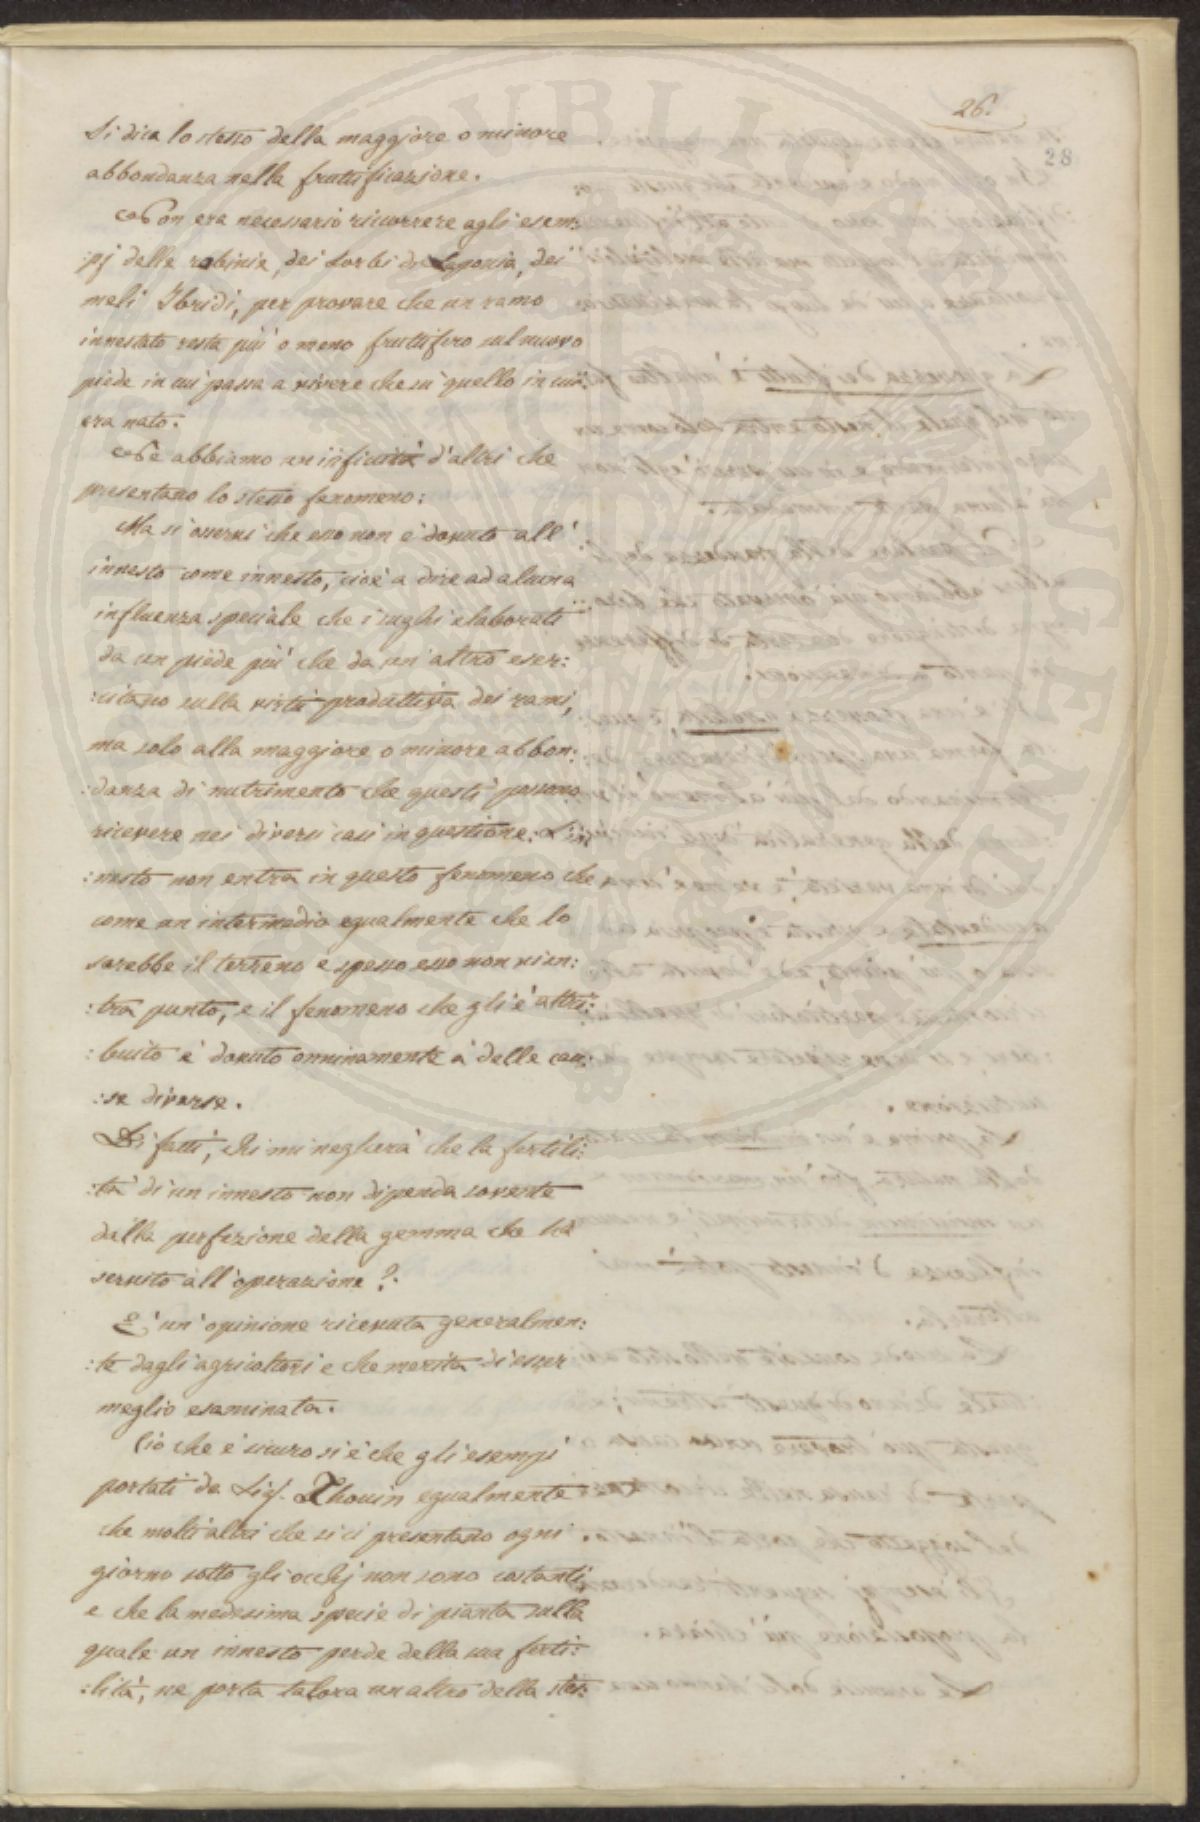 26.
28
Si dica lo stesso della maggiore o minore
abbondanza nella fruttificazione.
Non era necessario ricorrere agli esem:
:pj delle robinie, dei Sorbi di Laponia, dei
meli Ibridi, per provare che un ramo
innestato resta più o meno fruttifero sul nuovo
piede in cui passa a vivere che su quello in cui
era nato.
Ne abbiamo un infinità d'altri che
presentano lo stesso fenomeno:
Ma si osservi che esso non è dovuto all'
innesto come innesto, cioè a dire ad alcuna
influenza speciale che i sughi elaborati
da un piede più che da un'altro eser:
:citano sulla virtù produttiva dei rami,
ma solo alla maggiore o minore abbon:
:danza di nutrimento che questi possono
ricevere nei diversi casi in questione: L'in
:nesto non entra in questo fenomeno che
come un intermedio egualmente che lo
sarebbe il terreno e spesso esso non vi en:
:tra punto, e il fenomeno che gli è attri:
:buito è dovuto onninamente a delle cau:
:se diverse.
Di fatti, chi mi negherà che la fertili:
:tà di un innesto non dipenda sovente
dalla perfezione della gemma che ha
servito all'operazione?.
È un'opinione ricevuta generalmen:
:te dagli agricoltori e che merita di esser
meglio esaminata.
Ciò che è sicuro si è che gli esempi
portati da Sig. Thouin egualmente
che molti altri che si ci presentano ogni
giorno sotto gli occhj non sono costanti
e che la medesima specie di pianta sulla
quale un innesto perde della sua ferti:
:lità, ne porta talora un altro della stes: